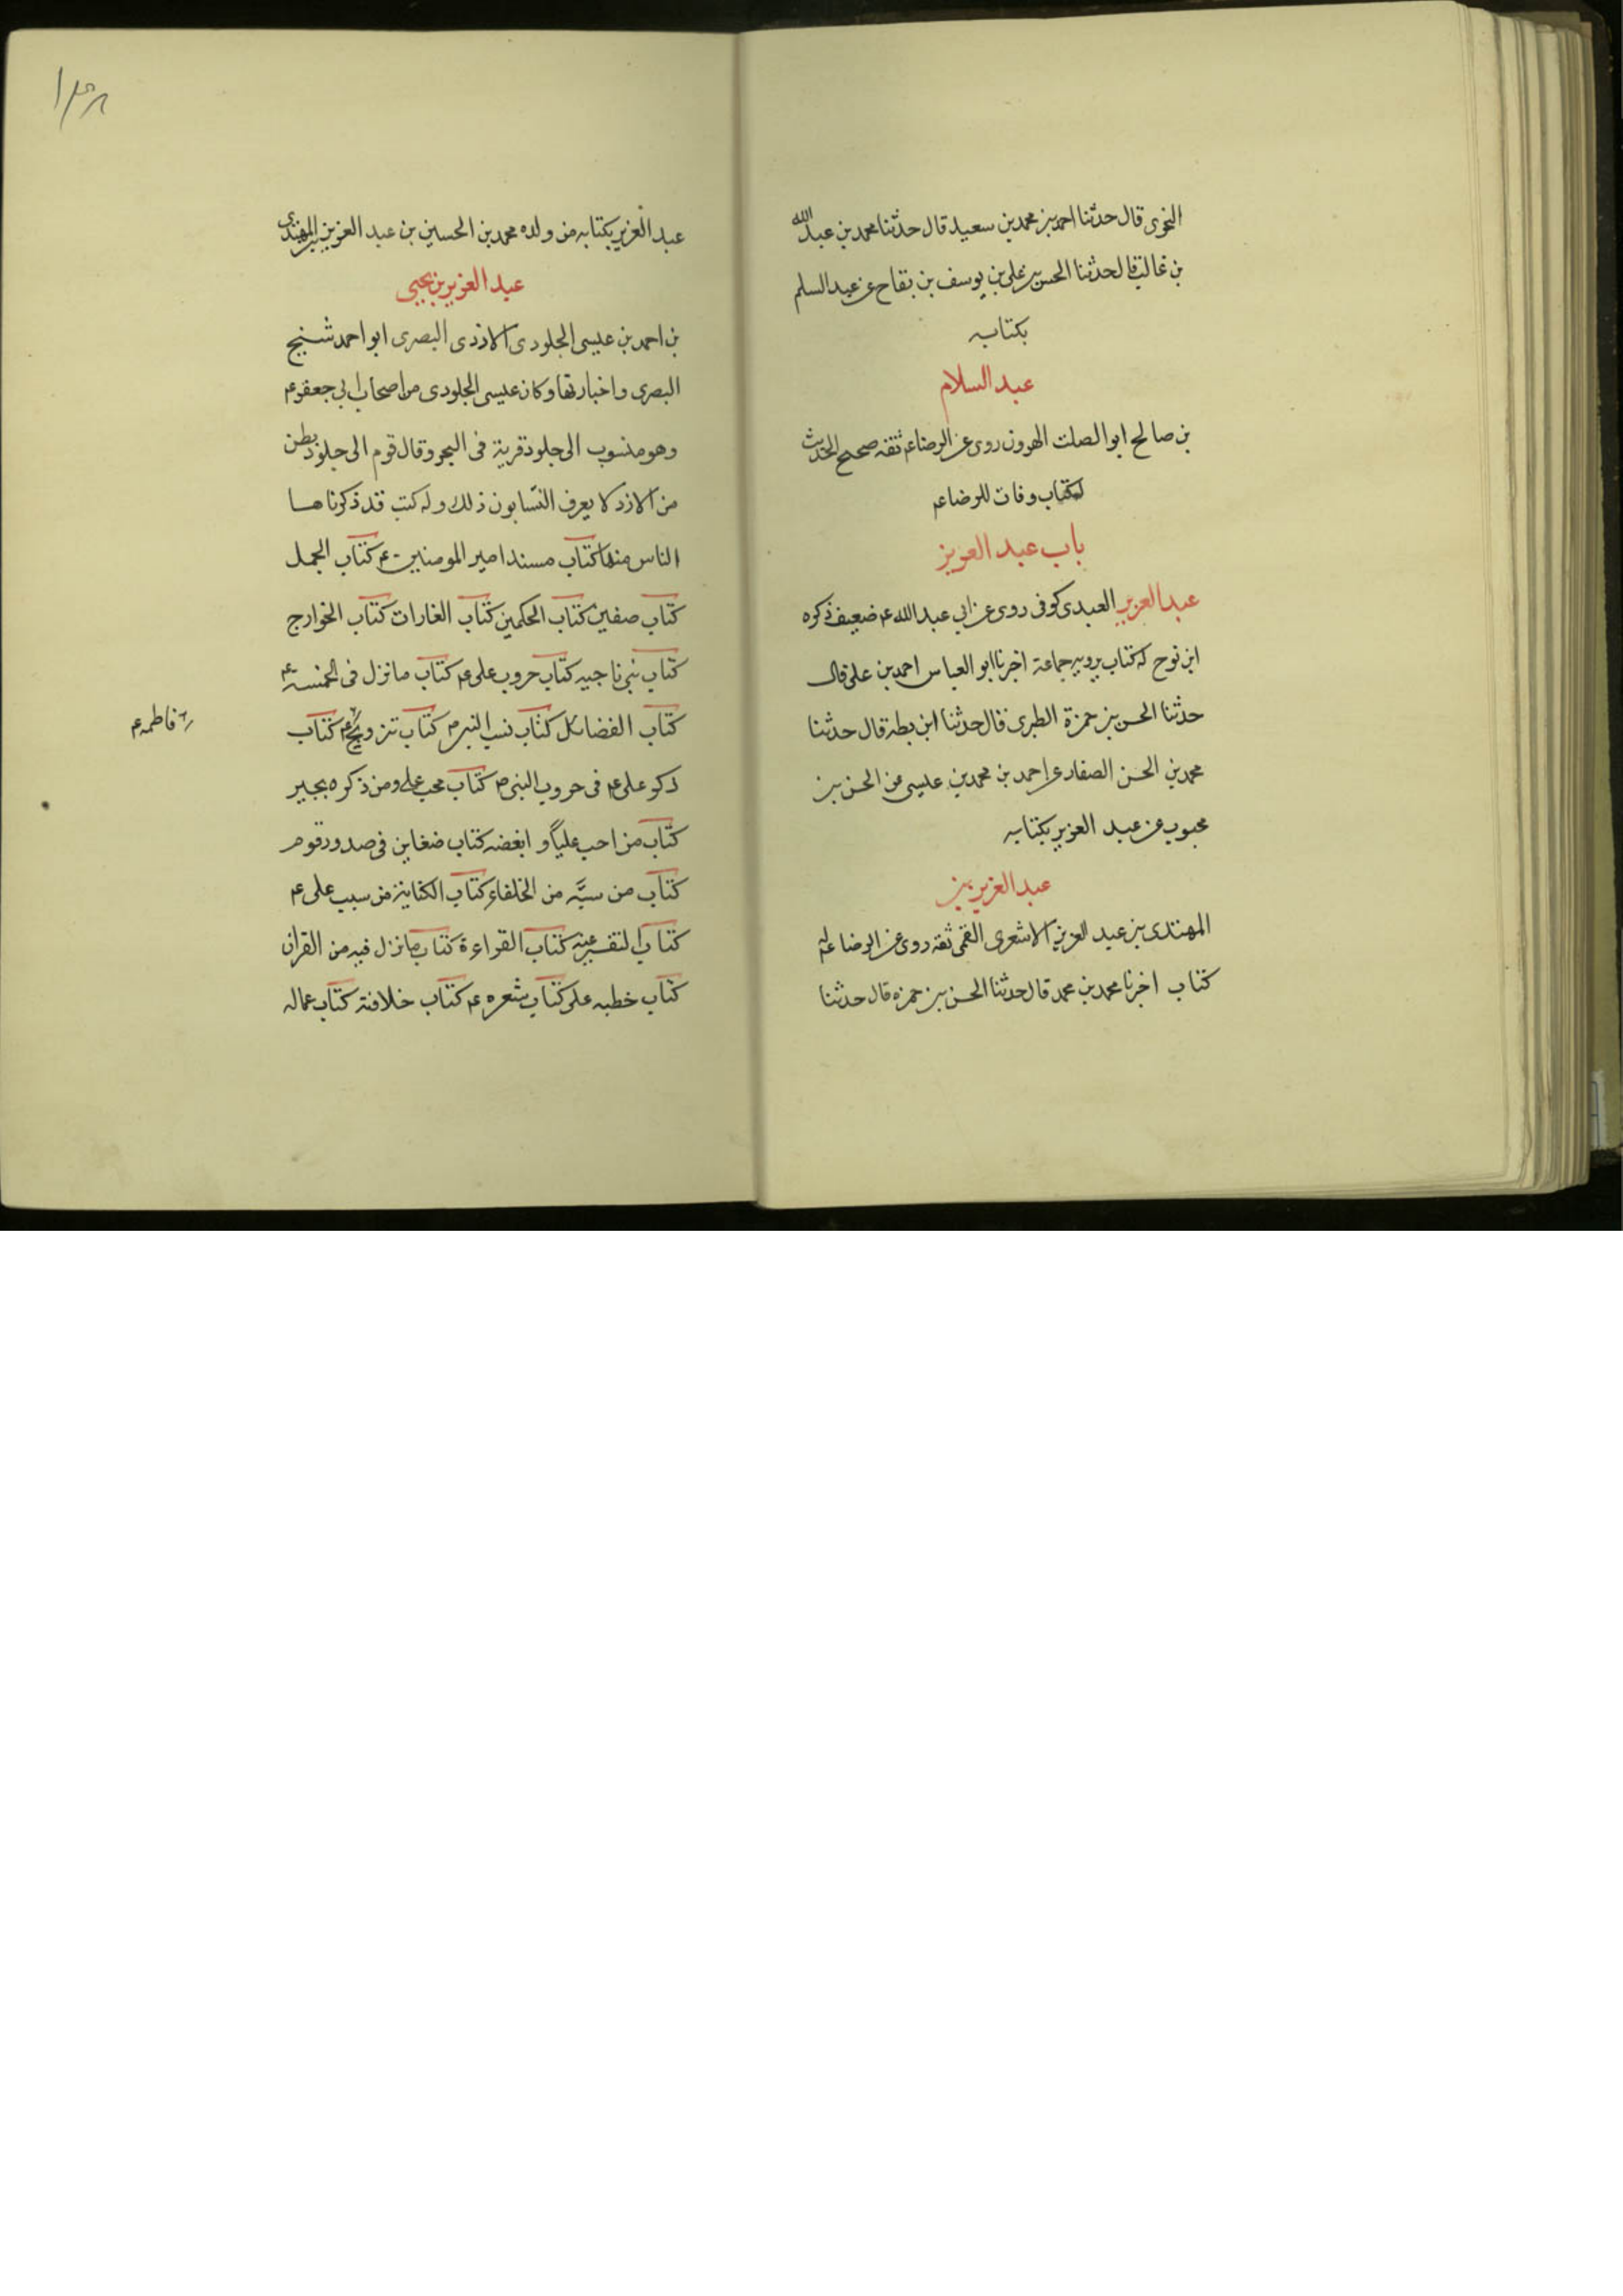 النحوى قال حدثنا احمد بن محمد بن سعيد قال حدثنا محمد بن عبد الله
بن غالب قال حدثنا الحسن بن على بن يوسف بن بقاح عن عبد السلم
بكتابه
عبد السلام
بن صالح ابو الصلت الهروى روى عن الرضا عم ثقه صحيح الحديث
له كتاب وفات للرضا عم
باب عبد العزيز
عبد العزيز العبدى كوفى روى عن ابى عبد الله عم ضعيف ذكره
ابن نوح له كتاب يرويه جماعة اخبرنا ابو العباس احمد بن على قال
حدثنا الحسن بن حمزة الطبرى قال حدثنا ابن بطه قال حدثنا
محمد بن الحسن الصفار عن احمد بن محمد بن عليسى عن الحسن بن
محبوب عن عبد العزيز بكتابه
عبد العزيز بن
المهتدى بن عبد العزيز الاشعرى القمى ثقه روى عن الرضا عم له
كتاب اخبرنا محمد بن محمد قال حدثنا الحسن بن حمزه قال حدثنا
عبد العزيز بكتابه من ولده محمد بن الحسين بن عبد العزيز بن المهتدى
عبد العزيز بن يحيى
بن احمد بن عليسى الجلودى الازدى البصرى ابو احمد شيخ
البصرى واخبارتها وكان عليسى الجلودى من اصحاب ابى جعفر عم
وهو منسوب الى جلود قرية فى البحر وقال قوم الى جلود بطن
من الازد لا يعرف النسّابون ذلك وله كتب قد ذكرناها
الناس منها كتاب مسند امير المومنين عم كتاب الجمل
كتاب صفين كتاب الحكمين كتاب الغارات كتاب الخوارج
كتاب بنى ناجيه كتاب حروب على عم كتاب ما نزل فى الخمسة عم
كتاب الفضائل كتاب نسب النبى م كتاب تزويج عم كتاب
فاطمه عم
ذكر على عم فى حروب النبى ص كتاب محب على ومن ذكره بخير
كتاب من احب علياً و ابغضه كتاب ضغاين فى صدور قوم
كتاب من سبّه من الخلفاء كتاب الكناية عن سبب على عم
كتاب التفسير عنه كتاب القراءة كتاب ما نزل فيه من القران
كتاب خطبه على كتاب شعره عم كتاب خلافته كتاب عماله